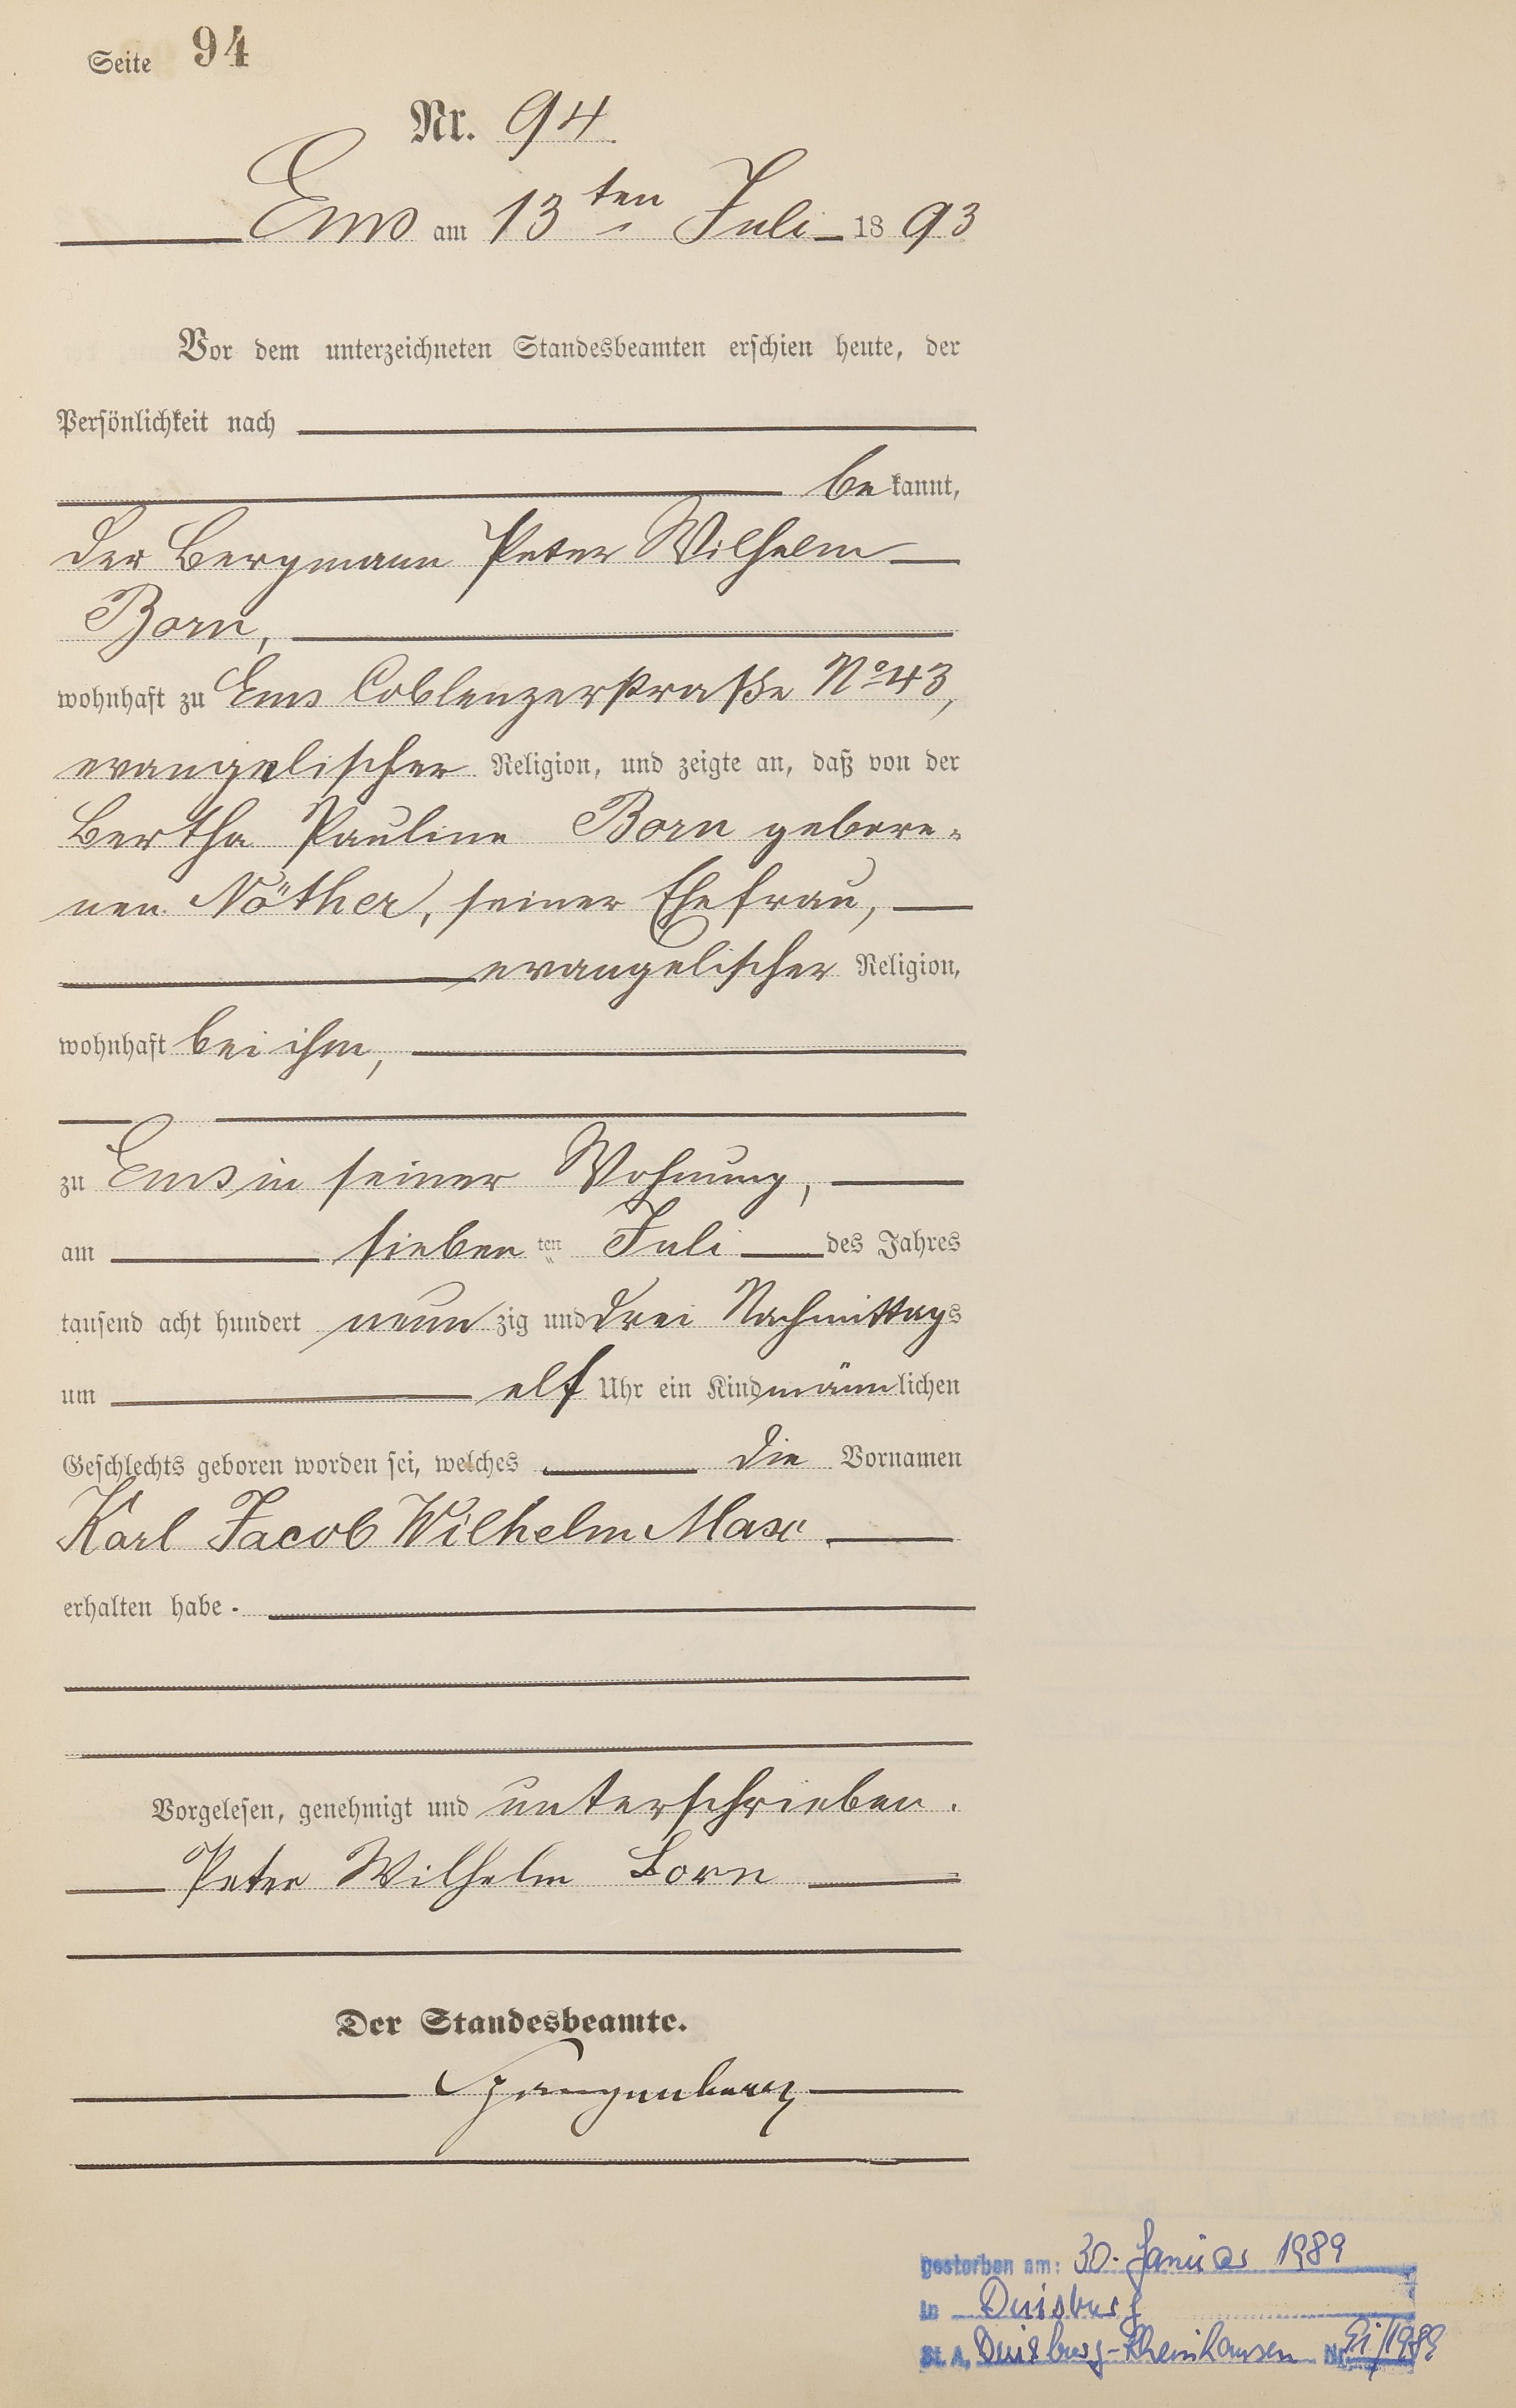 Seite 94
Nr. 94
Ems am 13ten Juli 1893
Vor dem unterzeichneten Standesbeamten erschien heute, der
Persönlichkeit nach
bekannt,
der Bergmann Peter Wilhelm
Born,
wohnhaft zu Ems Coblenzerstraße No 43,
evangelischer Religion, und zeigte an, daß von der
Bertha Pauline Born gebore-
nen Nöther, seiner Ehefrau,
evangelischer Religion,
wohnhaft bei ihm,
zu Ems in seiner Wohnung,
am siebenten Juli des Jahres
tausend acht hundert neunzig und drei Nachmittags
um elf Uhr ein Kind männlichen
Geschlechts geboren worden sei, welches die Vornamen
Karl Jacob Wilhelm Max
erhalten habe.
Vorgelesen, genehmigt und unterschrieben.
Peter Wilhelm Born
Der Standesbeamte.
gestorben am: 30. Januar 1989
in Duisburg
St. A. Duisburg-Rheinhausen Nr. /1989